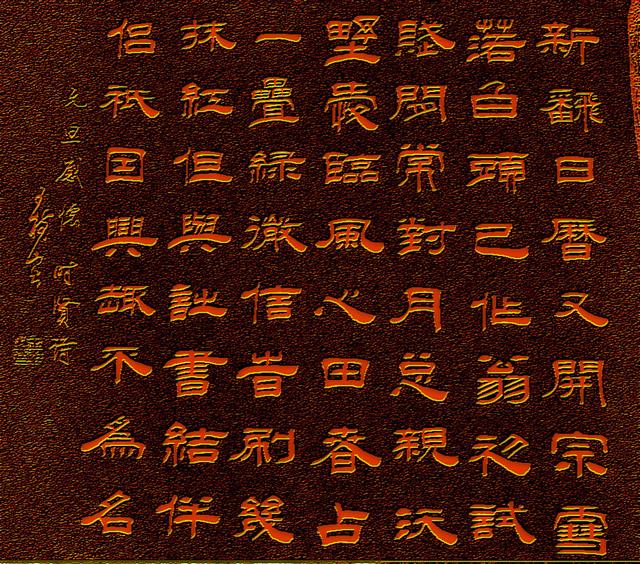 新翻日曆又開宗雪
落白頭已作翁初試
賦閒常對月总親沃
野愛臨風心田春占
一疊綠微信旹刷幾
抹紅但與詩書結伴
侶祇因興趣不為名
元旦感懷时贤诗